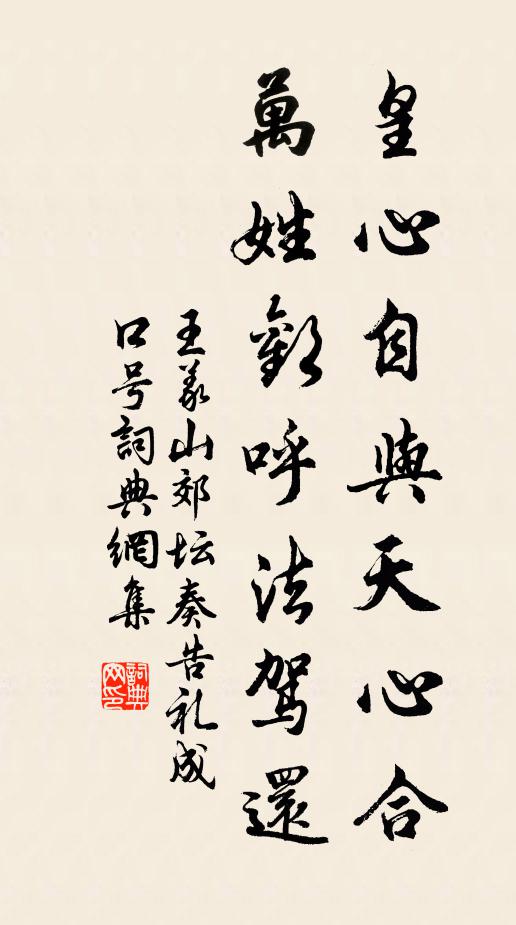 皇心自與天心合
萬姓歡呼法駕還
王義山郊坛奏告礼成
口号詞典網集
詞典
网印